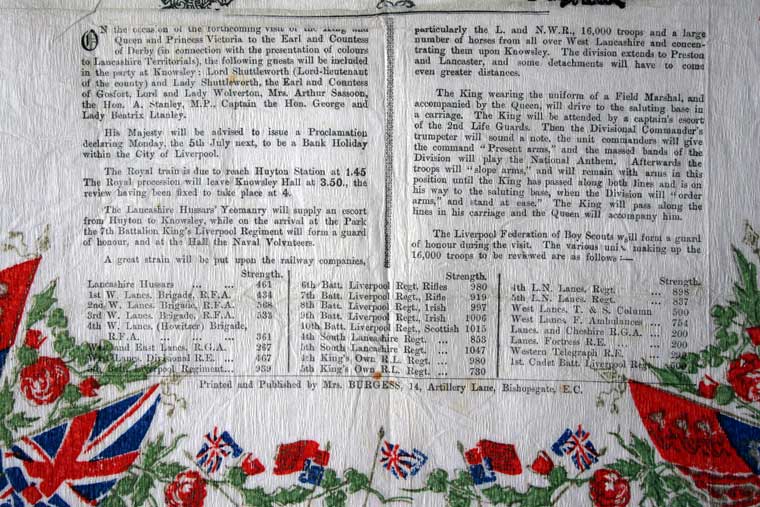 ON the occasion of the forthcoming visit of the King and
Queen and Princess Victoria to the Earl and Countess
of Derby (in connection with the presentation of colours
to Lancashire Territorials), the following guests will be included
in the party at Knowsley: Lord Shuttleworth (Lord-lieutenant
of the county) and Lady Shuttleworth, the Earl and Countess
of Gosfort, Lord and Lady Wolverton, Mrs. Arthur Sassoon,
the Hon. A. Stanley, M.P., Captain the Hon. George and
Lady Beatrix Stanley.
His Majesty will be advised to issue a Proclamation
declaring Monday, the 5th July next, to be a Bank Holiday
within the City of Liverpool.
The Royal train is due to reach Huyton Station at 1.45
The Royal procession will leave Knowsley Hall at 3.50., the
review having been fixed to take place at 4.
The Lancashire Hussars' Yeomanry will supply an escort
from Huyton to Knowsley, while on the arrival at the Park
the 7th Battalion King's Liverpool Regiment will form a guard
of honour, and at the Hall the Naval Volunteers.
A great strain will be put upon the railway companies,
particularly the L. and N.W.R., 16,000 troops and a large
number of horses from all over West Lancashire and concen-
trating them upon Knowsley. The division extends to Preston
and Lancaster, and some detachments will have to come
even greater distances.
The King wearing the uniform of a Field Marshal, and
accompanied by the Queen, will drive to the saluting base in
a carriage. The King will be attended by a captain's escort
of the 2nd Life Guards. Then the Divisional Commander's
trumpeter will sound a note, the unit commanders will give
the command "Present arms," and the massed bands of the
Division will play the National Anthem. Afterwards the
troops will "slope arms," and will remain with arms in this
position until the King has passed along both lines and is on
his way to the saluting base, when the Division will "order
arms," and stand at ease." The King will pass along the
lines in his carriage and the Queen will accompany him.
The Liverpool Federation of Boy Scouts will form a guard
of honour during the visit. The various units making up the
16,000 troops to be reviewed are as follows :—
Strength.
Lancashire Hussars ... ... 461
1st W. Lancs. Brigade, R.F.A. 434
2nd W. Lancs. Brigade, R.F.A. 568
3rd W. Lancs. Brigade, R.F.A. 533
4th W. Lancs. (Howitzer) Brigade,
R.F.A. ... ... 361
West and East Lancs. R.G.A. 267
Lancs. Divisional R.E. ... 467
5th Batt. Liverpool Regiment... 939
Strength.
6th Batt. Liverpool Regt. Rifles 980
7th Batt. Liverpool Regt., Rifle 919
8th Batt. Liverpool Regt., Irish 997
9th Batt. Liverpool Regt., Irish 1006
10th Batt. Liverpool Regt., Scottish 1015
4th South Lancashire Regt. ... 853
5th South Lancashire Regt. ... 1047
4th King's Own R.L. Regt. ... 980
5th King's Own R.L. Regt. ... 730
Strength.
4th L.N. Lancs. Regt. ... 898
5th L.N. Lancs. Regt. ... 837
West Lancs. T. & S. Column 500
West Lancs. F. Ambulances ... 754
Lancs. and Cheshire R.G.A. ... 200
Lancs. Fortress R.E. ... 200
Western Telegraph R.E. ...
1st. Cadet Batt. Liverpool Reg
Printed and Published by Mrs. BURGESS, 14, Artillery Lane, Bishopsgate, E.C.